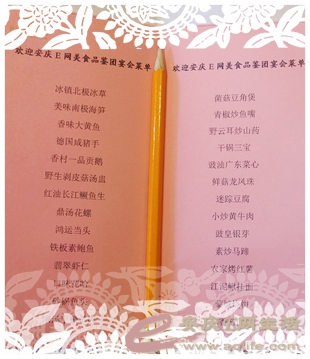 欢迎安庆E网美食品鉴团宴会菜单
冰镇北极冰草
美味南极海笋
香味大黄鱼
德国咸猪手
香村一品贡鹅
野生剥皮菇汤盅
红油长江鮰鱼生
鼎汤花螺
鸿运当头
铁板素鲍鱼
翡翠虾仁
欢迎安庆E网美食品鉴团宴会菜单
菌菇豆角煲
青椒炒鱼嘴
野云耳炒山药
干锅三宝
豉油广东菜心
鲜菇龙凤珠
迷踪豆腐
小炒黄牛肉
豉皇银芽
素炒马蹄
农家烤红薯
www.aqlife.com